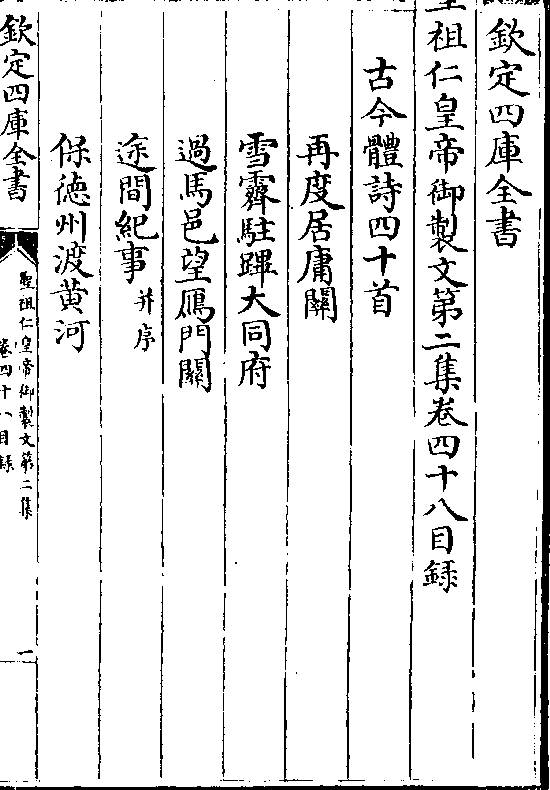 欽定四庫全書
聖祖仁皇帝御製文第二集卷四十八目録
古今體詩四十首
再度居庸關
雪霽駐蹕大同府
過馬邑望鴈門關
途間紀事并序
保徳州渡黄河
欽定四庫全書
聖祖仁皇帝御製文第二集
卷四十八目録
一